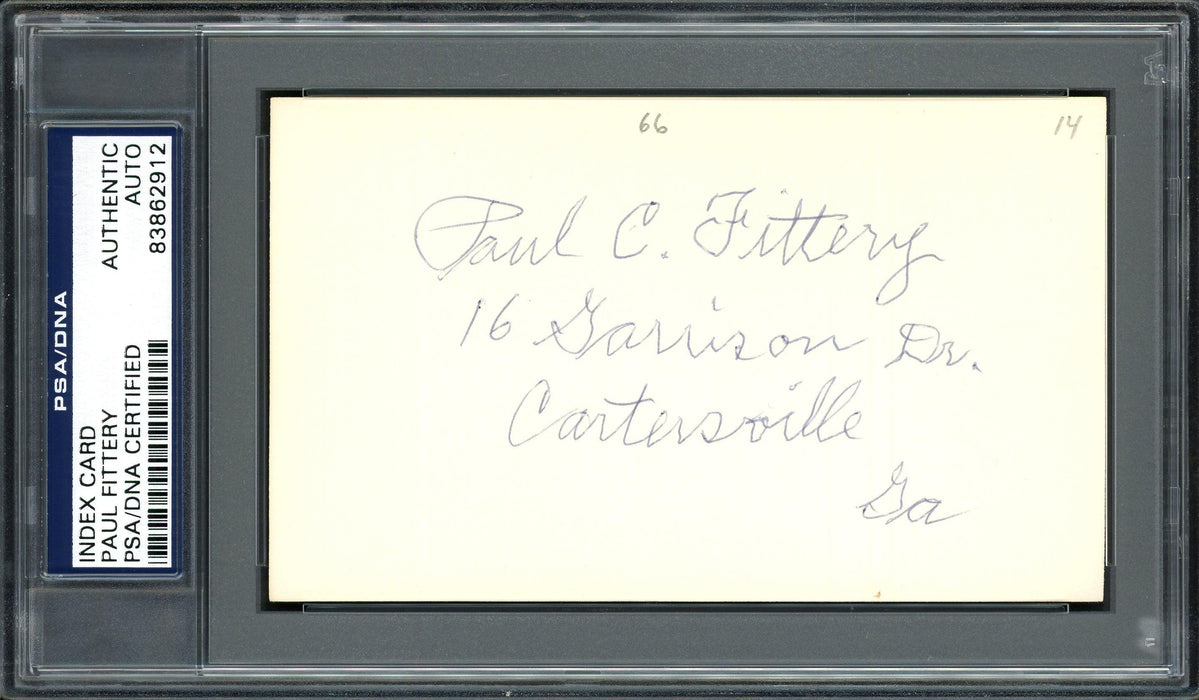 PSA/DNA
INDEX CARD
PAUL FITTERY
PSA/DNA CERTIFIED
AUTHENTIC
AUTO
83862912
66
14
Paul C. Fittery
16 Garrison Dr.
Cartersville
Ga